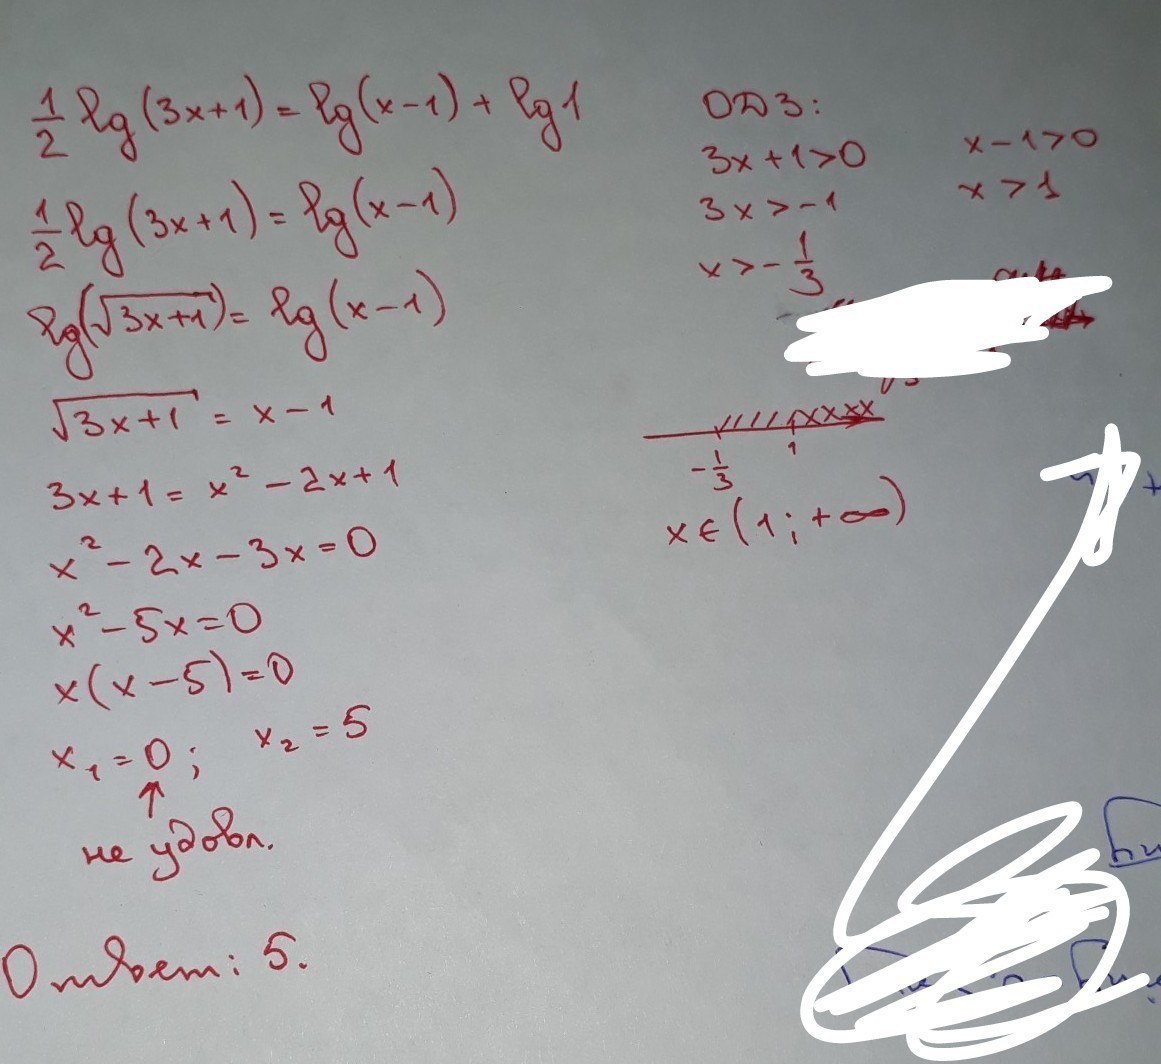 1/2 lg(3x+1) = lg(x-1) + lg1
1/2 lg(3x+1) = lg(x-1)
lg(√(3x+1)) = lg(x-1)
√(3x+1) = x-1
3x+1 = x² - 2x+1
x² - 2x - 3x = 0
x² - 5x = 0
x(x-5) = 0
x₁ = 0; x₂ = 5
↑
не удовл.
Ответ: 5.
ОДЗ:
3x+1>0
3x>-1
x>-1/3
x-1>0
x>1
-1/3 1
x∈(1;+∞)